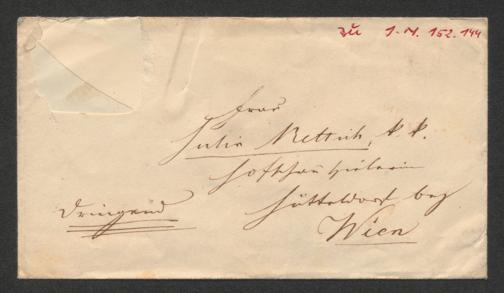 zu I. N. 152.144
Frau
Julie Rettich, k. k.
Hofschauspielerin
Hütteldorf bey
Wien
Dringend